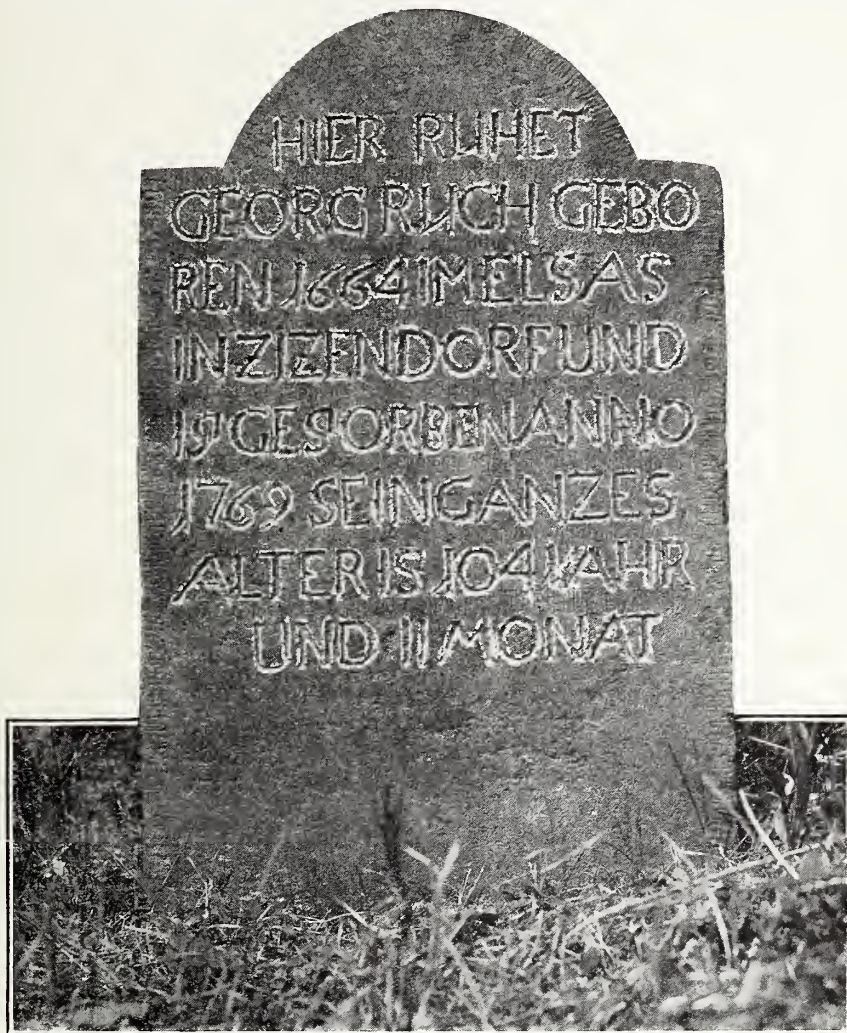 HIER RUHET
GEORG RUCH GEBO
REN 1664 IM ELSAS
IN ZIZENDORF UND
IST GESTORBEN ANNO
1769 SEIN GANZES
ALTER IS 104 IAHR
UND 11 MONAT